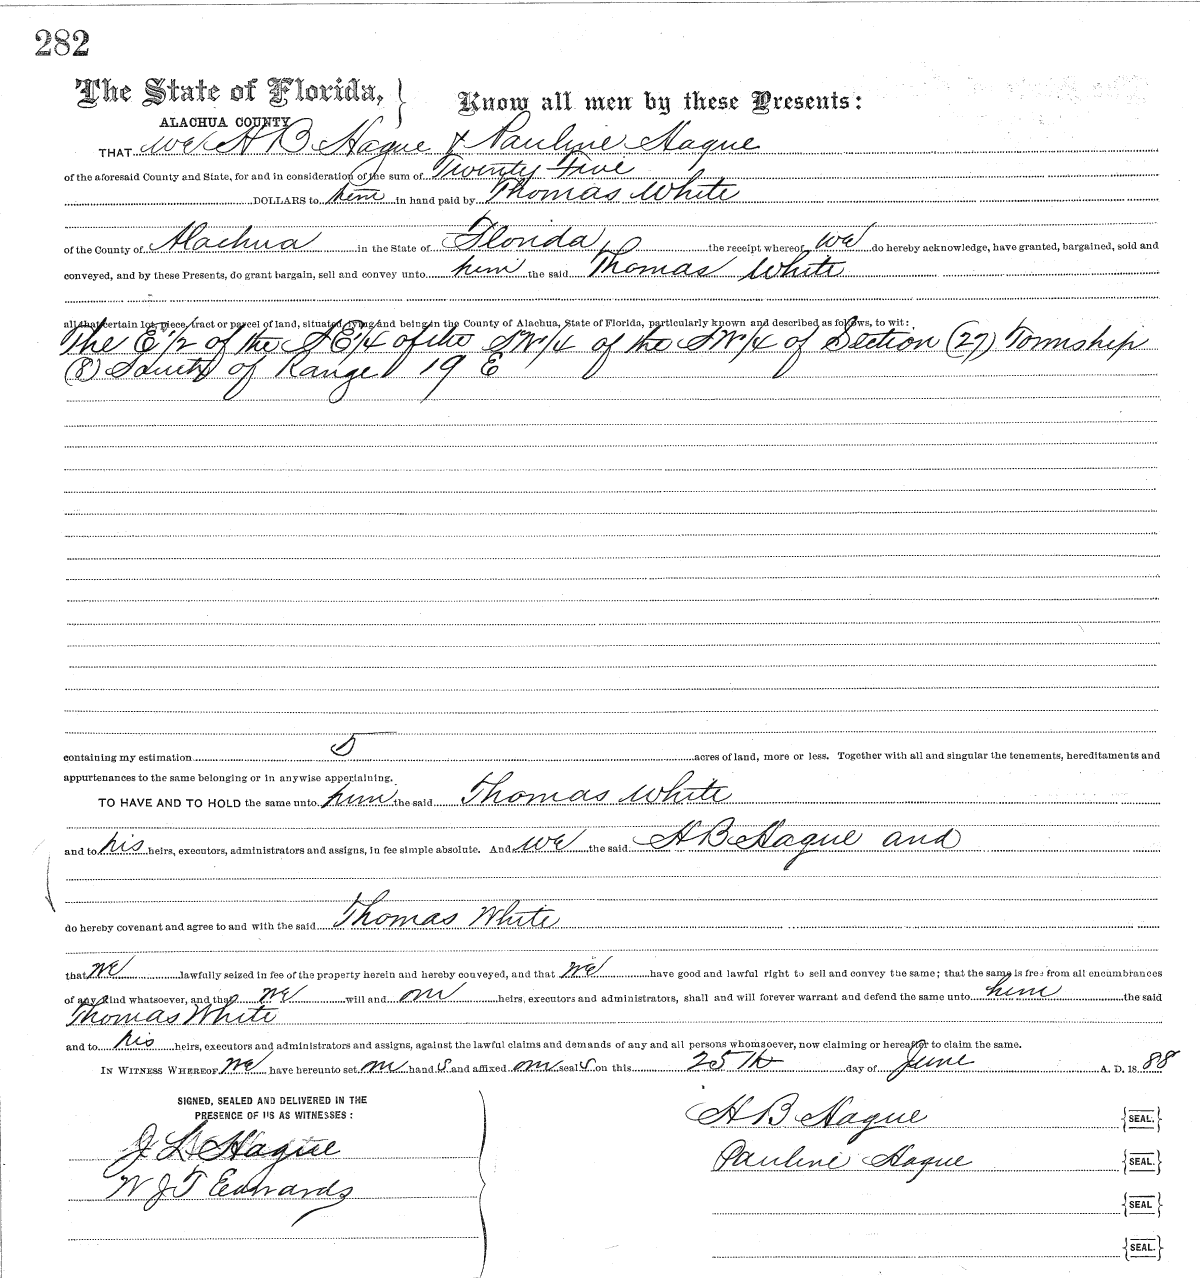 282
The State of Florida, } Know all men by these Presents:
ALACHUA COUNTY
THAT we H B Hague & Pauline Hague
of the aforesaid County and State, for and in consideration of the sum of Twenty Five
DOLLARS to him in hand paid by Thomas White
of the County of Alachua in the State of Florida, the receipt whereof we do hereby acknowledge, have granted, bargained, sold and
conveyed, and by these Presents, do grant bargain, sell and convey unto him the said Thomas White
all that certain lot, piece, tract or parcel of land, situated, lying and being in the County of Alachua, State of Florida, particularly known and described as follows, to wit:
The E 1/2 of the SE 1/4 of the SW 1/4 of the SW 1/4 of Section (27) Township
(8) South of Range 19 E
containing my estimation 5 acres of land, more or less. Together with all and singular the tenements, hereditaments and
appurtenances to the same belonging or in anywise appertaining.
TO HAVE AND TO HOLD the same unto him the said Thomas White
and to his heirs, executors, administrators and assigns, in fee simple absolute. And we the said H B Hague and
do hereby covenant and agree to and with the said Thomas White
that we lawfully seized in fee of the property herein and hereby conveyed, and that we have good and lawful right to sell and convey the same; that the same is free from all encumbrances
of any kind whatsoever, and that we will and our heirs, executors and administrators, shall and will forever warrant and defend the same unto him the said
Thomas White
and to his heirs, executors and administrators and assigns, against the lawful claims and demands of any and all persons whomsoever, now claiming or hereafter to claim the same.
IN WITNESS WHEREOF, we have hereunto set our hand s and affixed our seal s on this 25th day of June A. D. 18 88
SIGNED, SEALED AND DELIVERED IN THE
PRESENCE OF US AS WITNESSES:
H B Hague {SEAL.}
J L Hague
Pauline Hague {SEAL.}
W J T Edwards
{SEAL}
{SEAL.}